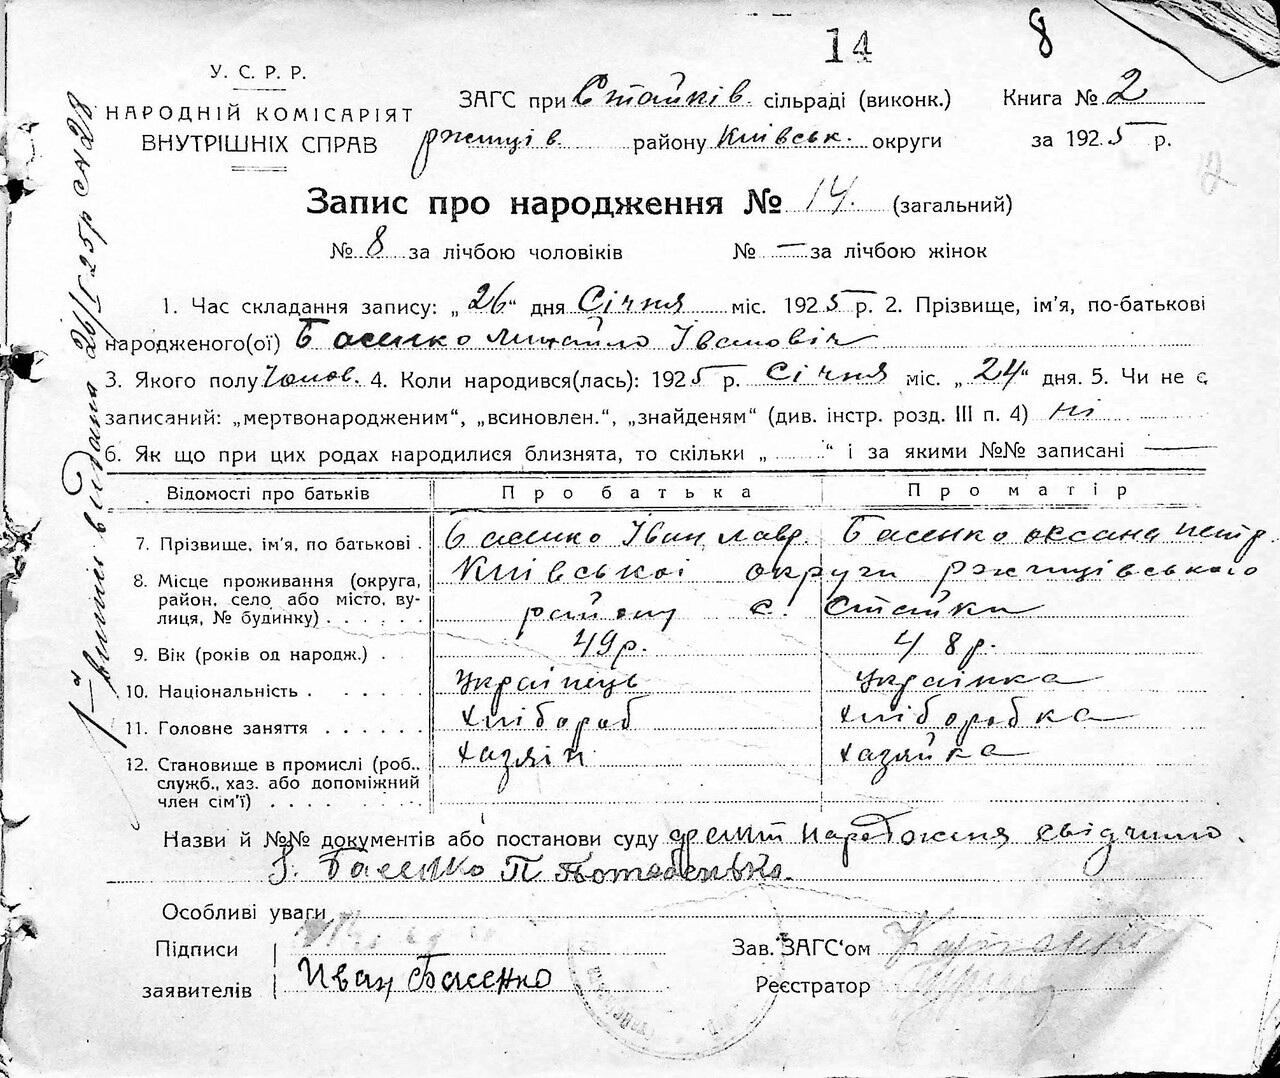 14
8
У. С. Р. Р.
НАРОДНІЙ КОМІСАРІЯТ
ВНУТРІШНІХ СПРАВ
ЗАГС при Стайків. сільраді (виконк.)
Ржищів. району Київськ. округи
Книга № 2
за 1925 р.
2
Запис про народження № 14. (загальний)
№ 8 за лічбою чоловіків № — за лічбою жінок
1. Час складання запису: „26“ дня Січня міс. 1925 р. 2. Прізвище, ім'я, по-батькові
народженого(ої) Басенко Михайло Іванович
3. Якого полу Чолов. 4. Коли народився(лась): 1925 р. Січня міс. „24“ дня. 5. Чи не є
записаний: „мертвонародженим“, „всиновлен.“, „знайденям“ (див. інстр. розд. III п. 4) ні
6. Як що при цих родах народилися близнята, то скільки „ “ і за якими №№ записані —
Відомості про батьків Про батька Про матір
7. Прізвище, ім'я, по батькові . Басенко Іван Лавр. Басенко Оксана Петр.
8. Місце проживання (округа, Київської округи Ржищівського
район, село або місто, ву-
лиця, № будинку) . . . . . . району с. Стайки
9. Вік (років од народж.) . 49 р. 48 р.
10. Національність . . . . . Українець Українка
11. Головне заняття . . . . . . Хлібороб Хліборобка
12. Становище в промислі (роб., Хазяїн Хазяйка
служб., хаз. або допоміжний
член сім'ї) . . . . . . . .
Назви й №№ документів або постанови суду народження
І. Басенко П
Особливі уваги
Підписи
заявителів Иван Басенко
Зав. ЗАГС'ом
Реєстратор
видана 26/I 25р № 28